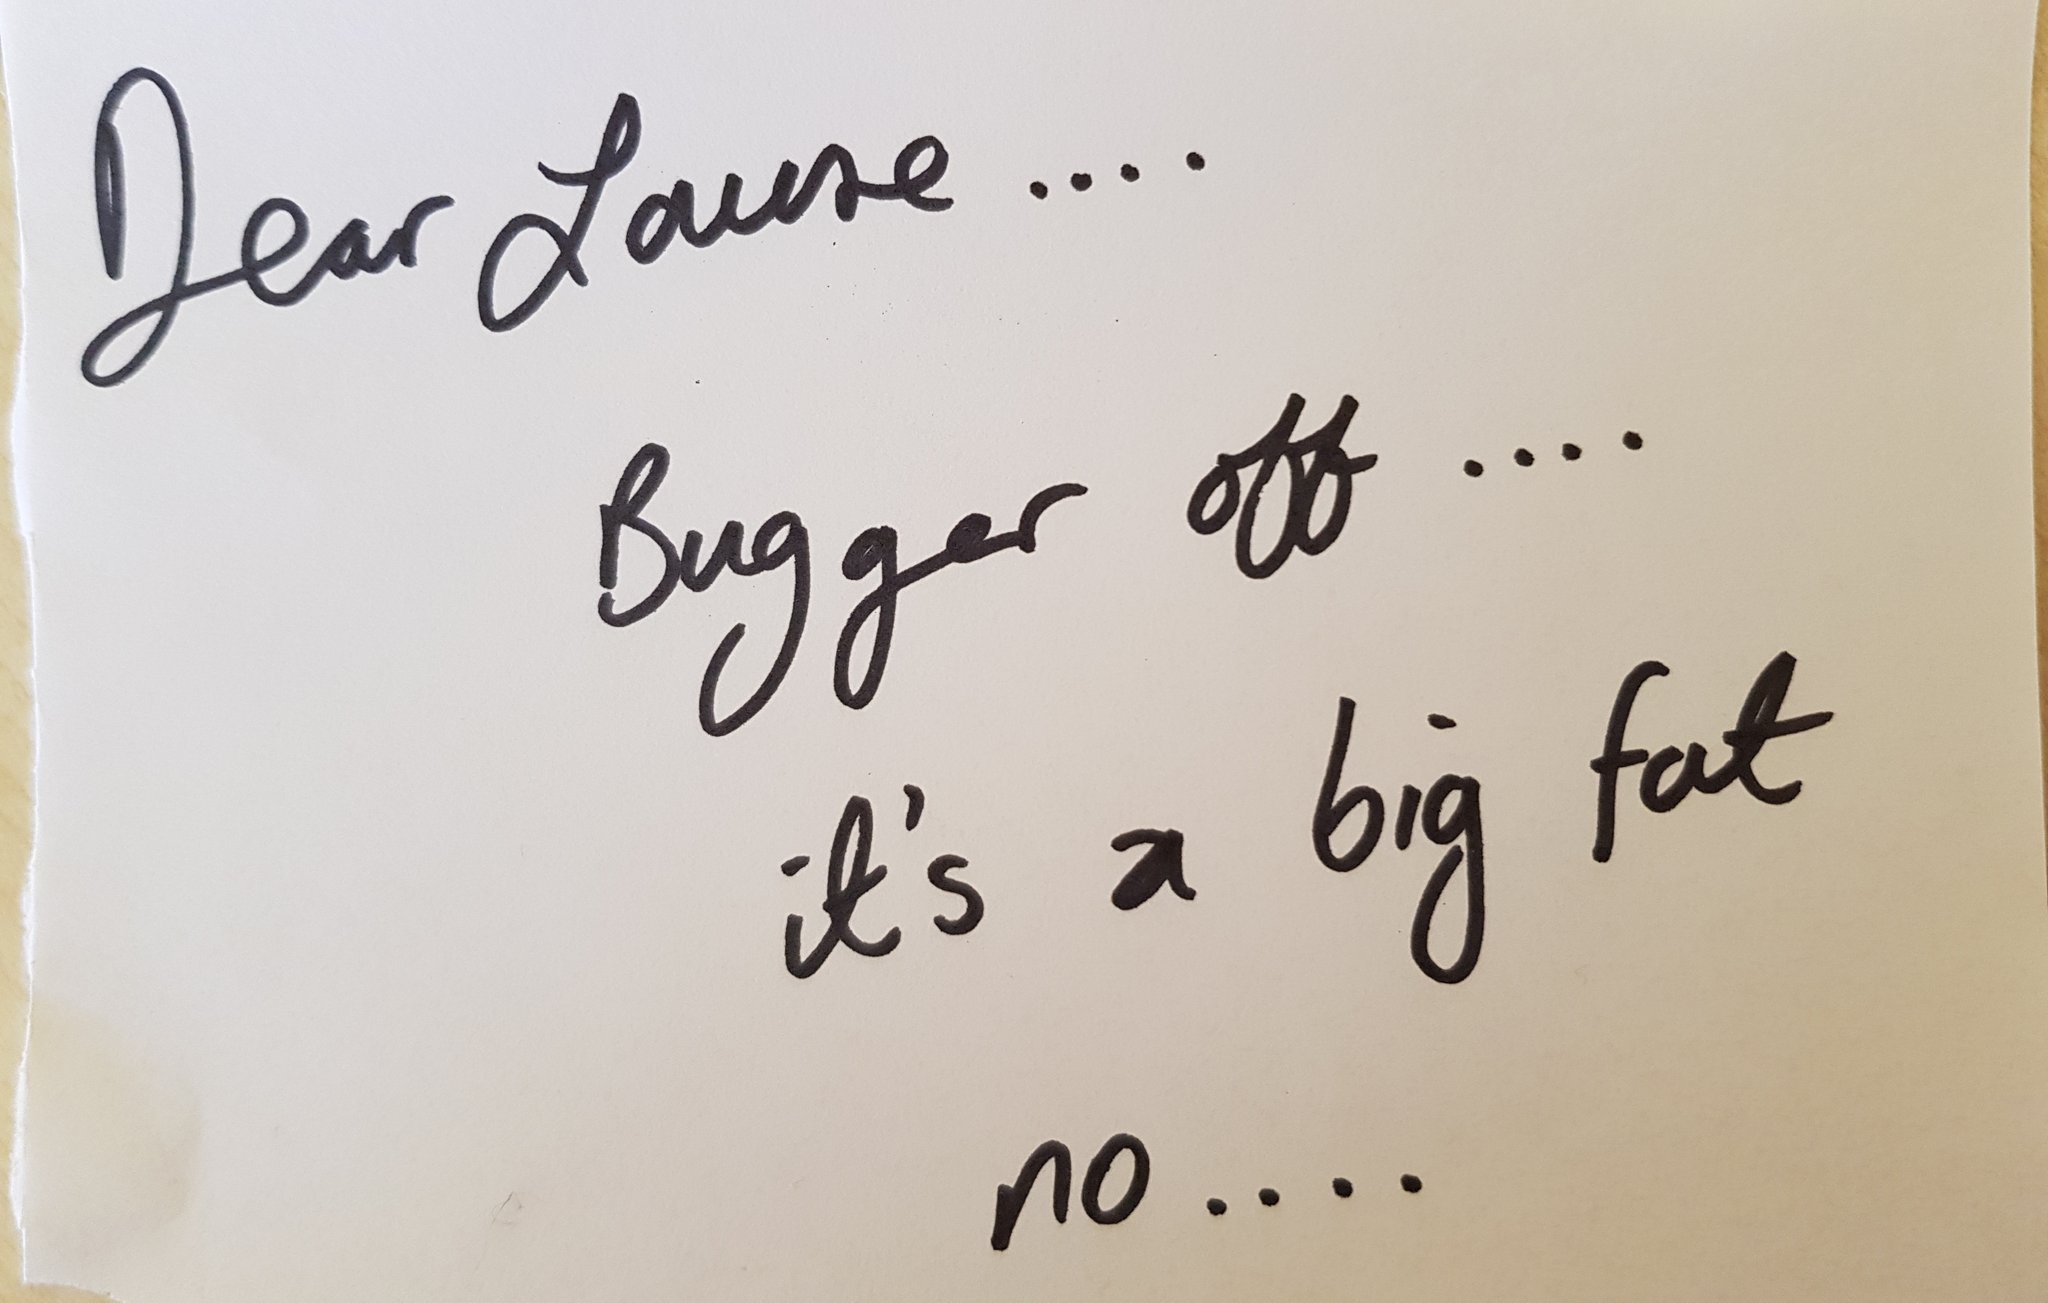 Dear Louise....
Bugger off....
it's a big fat
no....